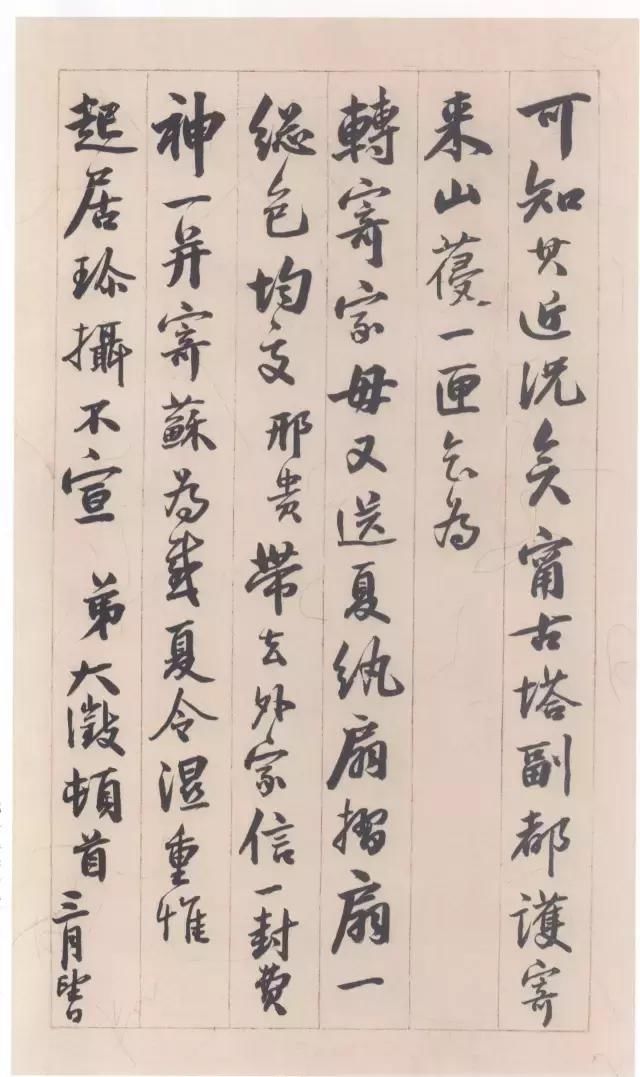 可知其近况矣甯古塔副都護寄
来山葠一匣乞為
轉寄家母又送夏紈扇摺扇一
總包均交邢貴帶去外家信一封費
神一并寄蘇為感夏令濕重惟
起居珍攝不宣 弟大澂頓首 三月